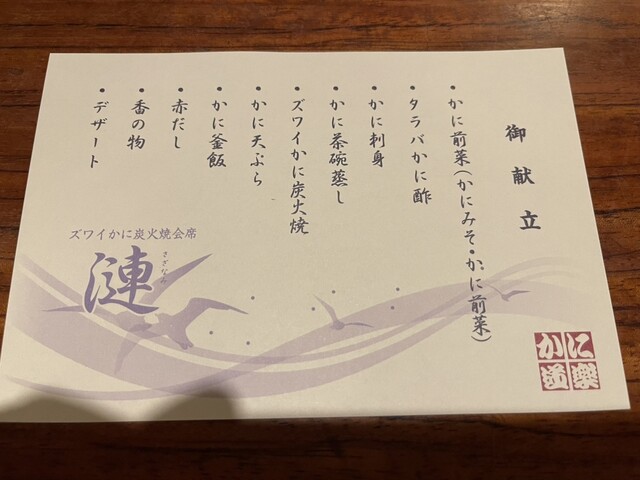 御献立
・かに前菜(かにみそ・かに前菜)
・タラバかに酢
・かに刺身
・かに茶碗蒸し
・ズワイかに炭火焼
・かに天ぷら
・かに釜飯
・赤だし
・香の物
・デザート
ズワイかに炭火焼会席
さざなみ
漣
かに
道楽